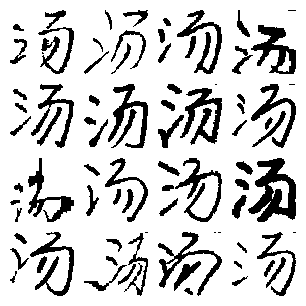 汤汤汤汤
汤汤汤汤
汤汤汤汤
汤汤汤汤